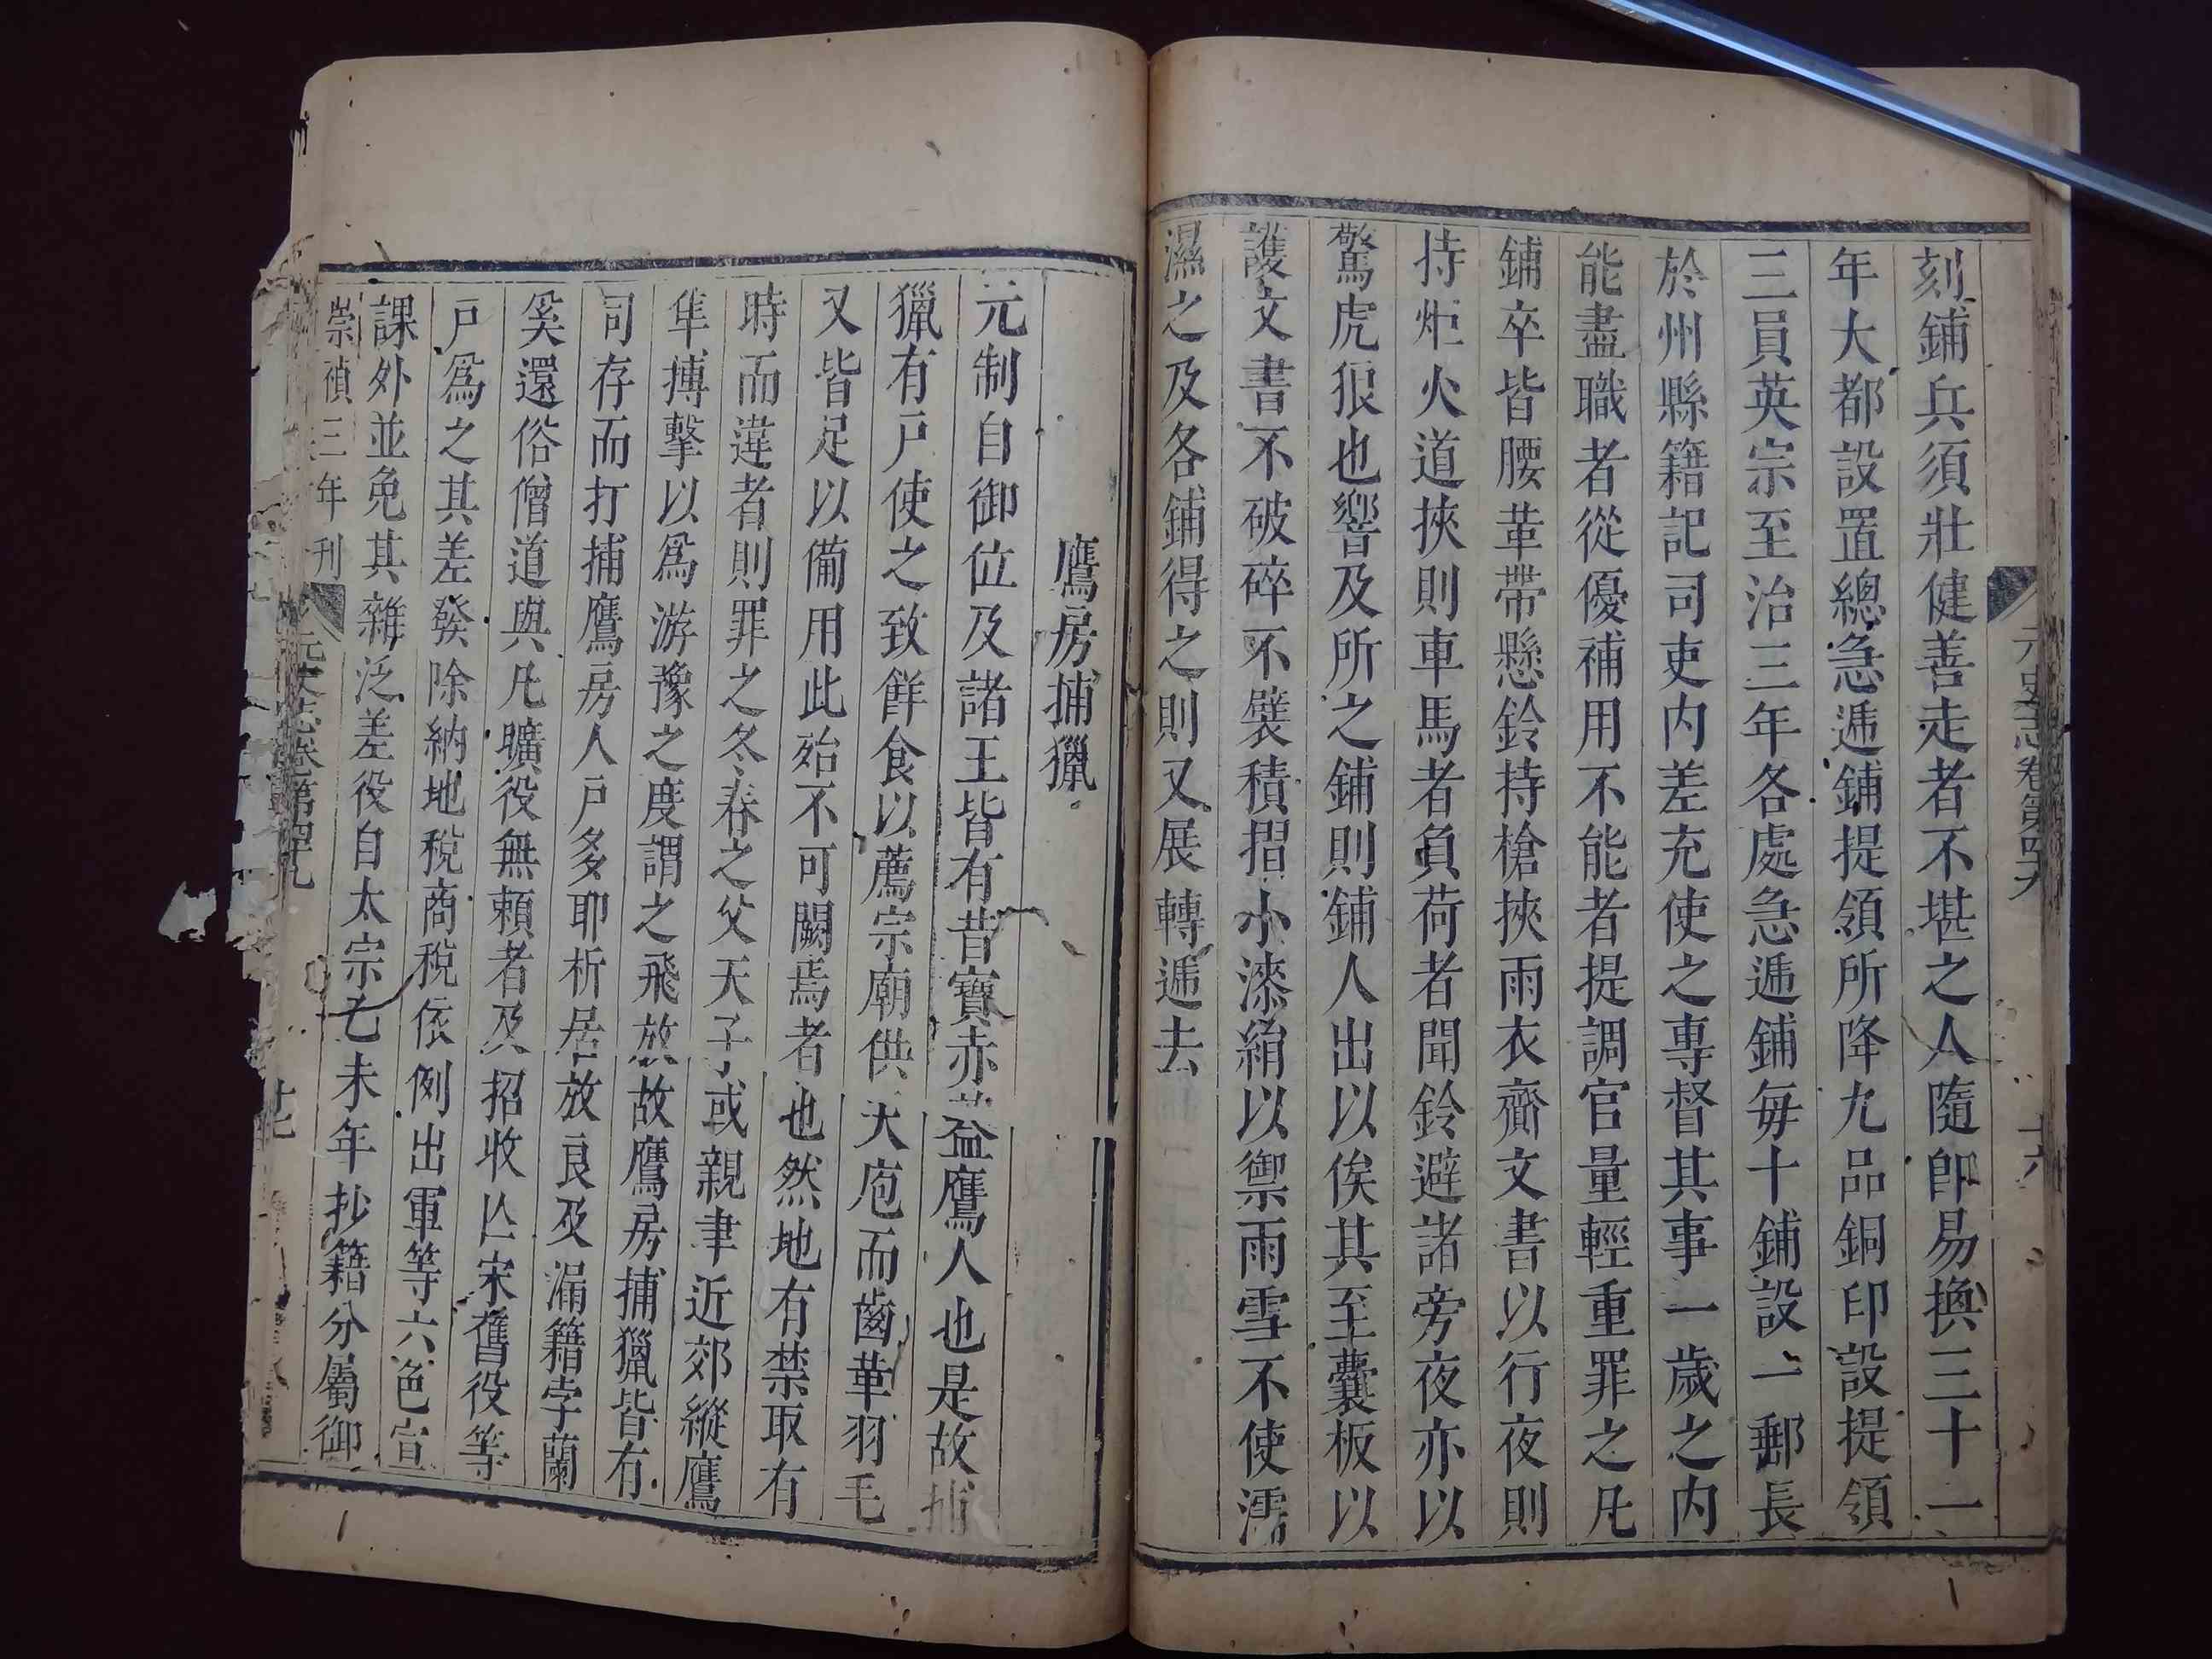 元史志卷第四九
十六
刻鋪兵須壯健善走者不堪之人隨卽易換三十一
年大都設置總急遞鋪提領所降九品銅印設提領
三員英宗至治三年各處急遞鋪每十鋪設一郵長
於州縣籍記司吏内差充使之專督其事一歲之内
能盡職者從優補用不能者提調官量輕重罪之凡
鋪卒皆腰革帶懸鈴持槍挾雨衣齎文書以行夜則
持炬火道挾則車馬者負荷者聞鈴避諸旁夜亦以
驚虎狼也響及所之鋪則鋪人出以俟其至囊板以
護文書不破碎不襞積摺小漆絹以禦雨雪不使濡
濕之及各鋪得之則又展轉遞去
鷹房捕獵
元制自御位及諸王皆有昔寶赤葢鷹人也是故捕
獵有戸使之致鮮食以薦宗廟供天庖而齒革羽毛
又皆足以備用此殆不可闕焉者也然地有禁取有
時而違者則罪之冬春之交天子或親幸近郊縱鷹
隼搏擊以爲游豫之度謂之飛放故鷹房捕獵皆有
司存而打捕鷹房人戸多取析居放良及漏籍孛蘭
奚還俗僧道與凡曠役無賴者及招收亾宋舊役等
戸爲之其差發除納地稅商稅依例出軍等六色宣
課外並免其雜泛差役自太宗乙未年抄籍分屬御
崇禎三年刊
元史志卷第四九
十七